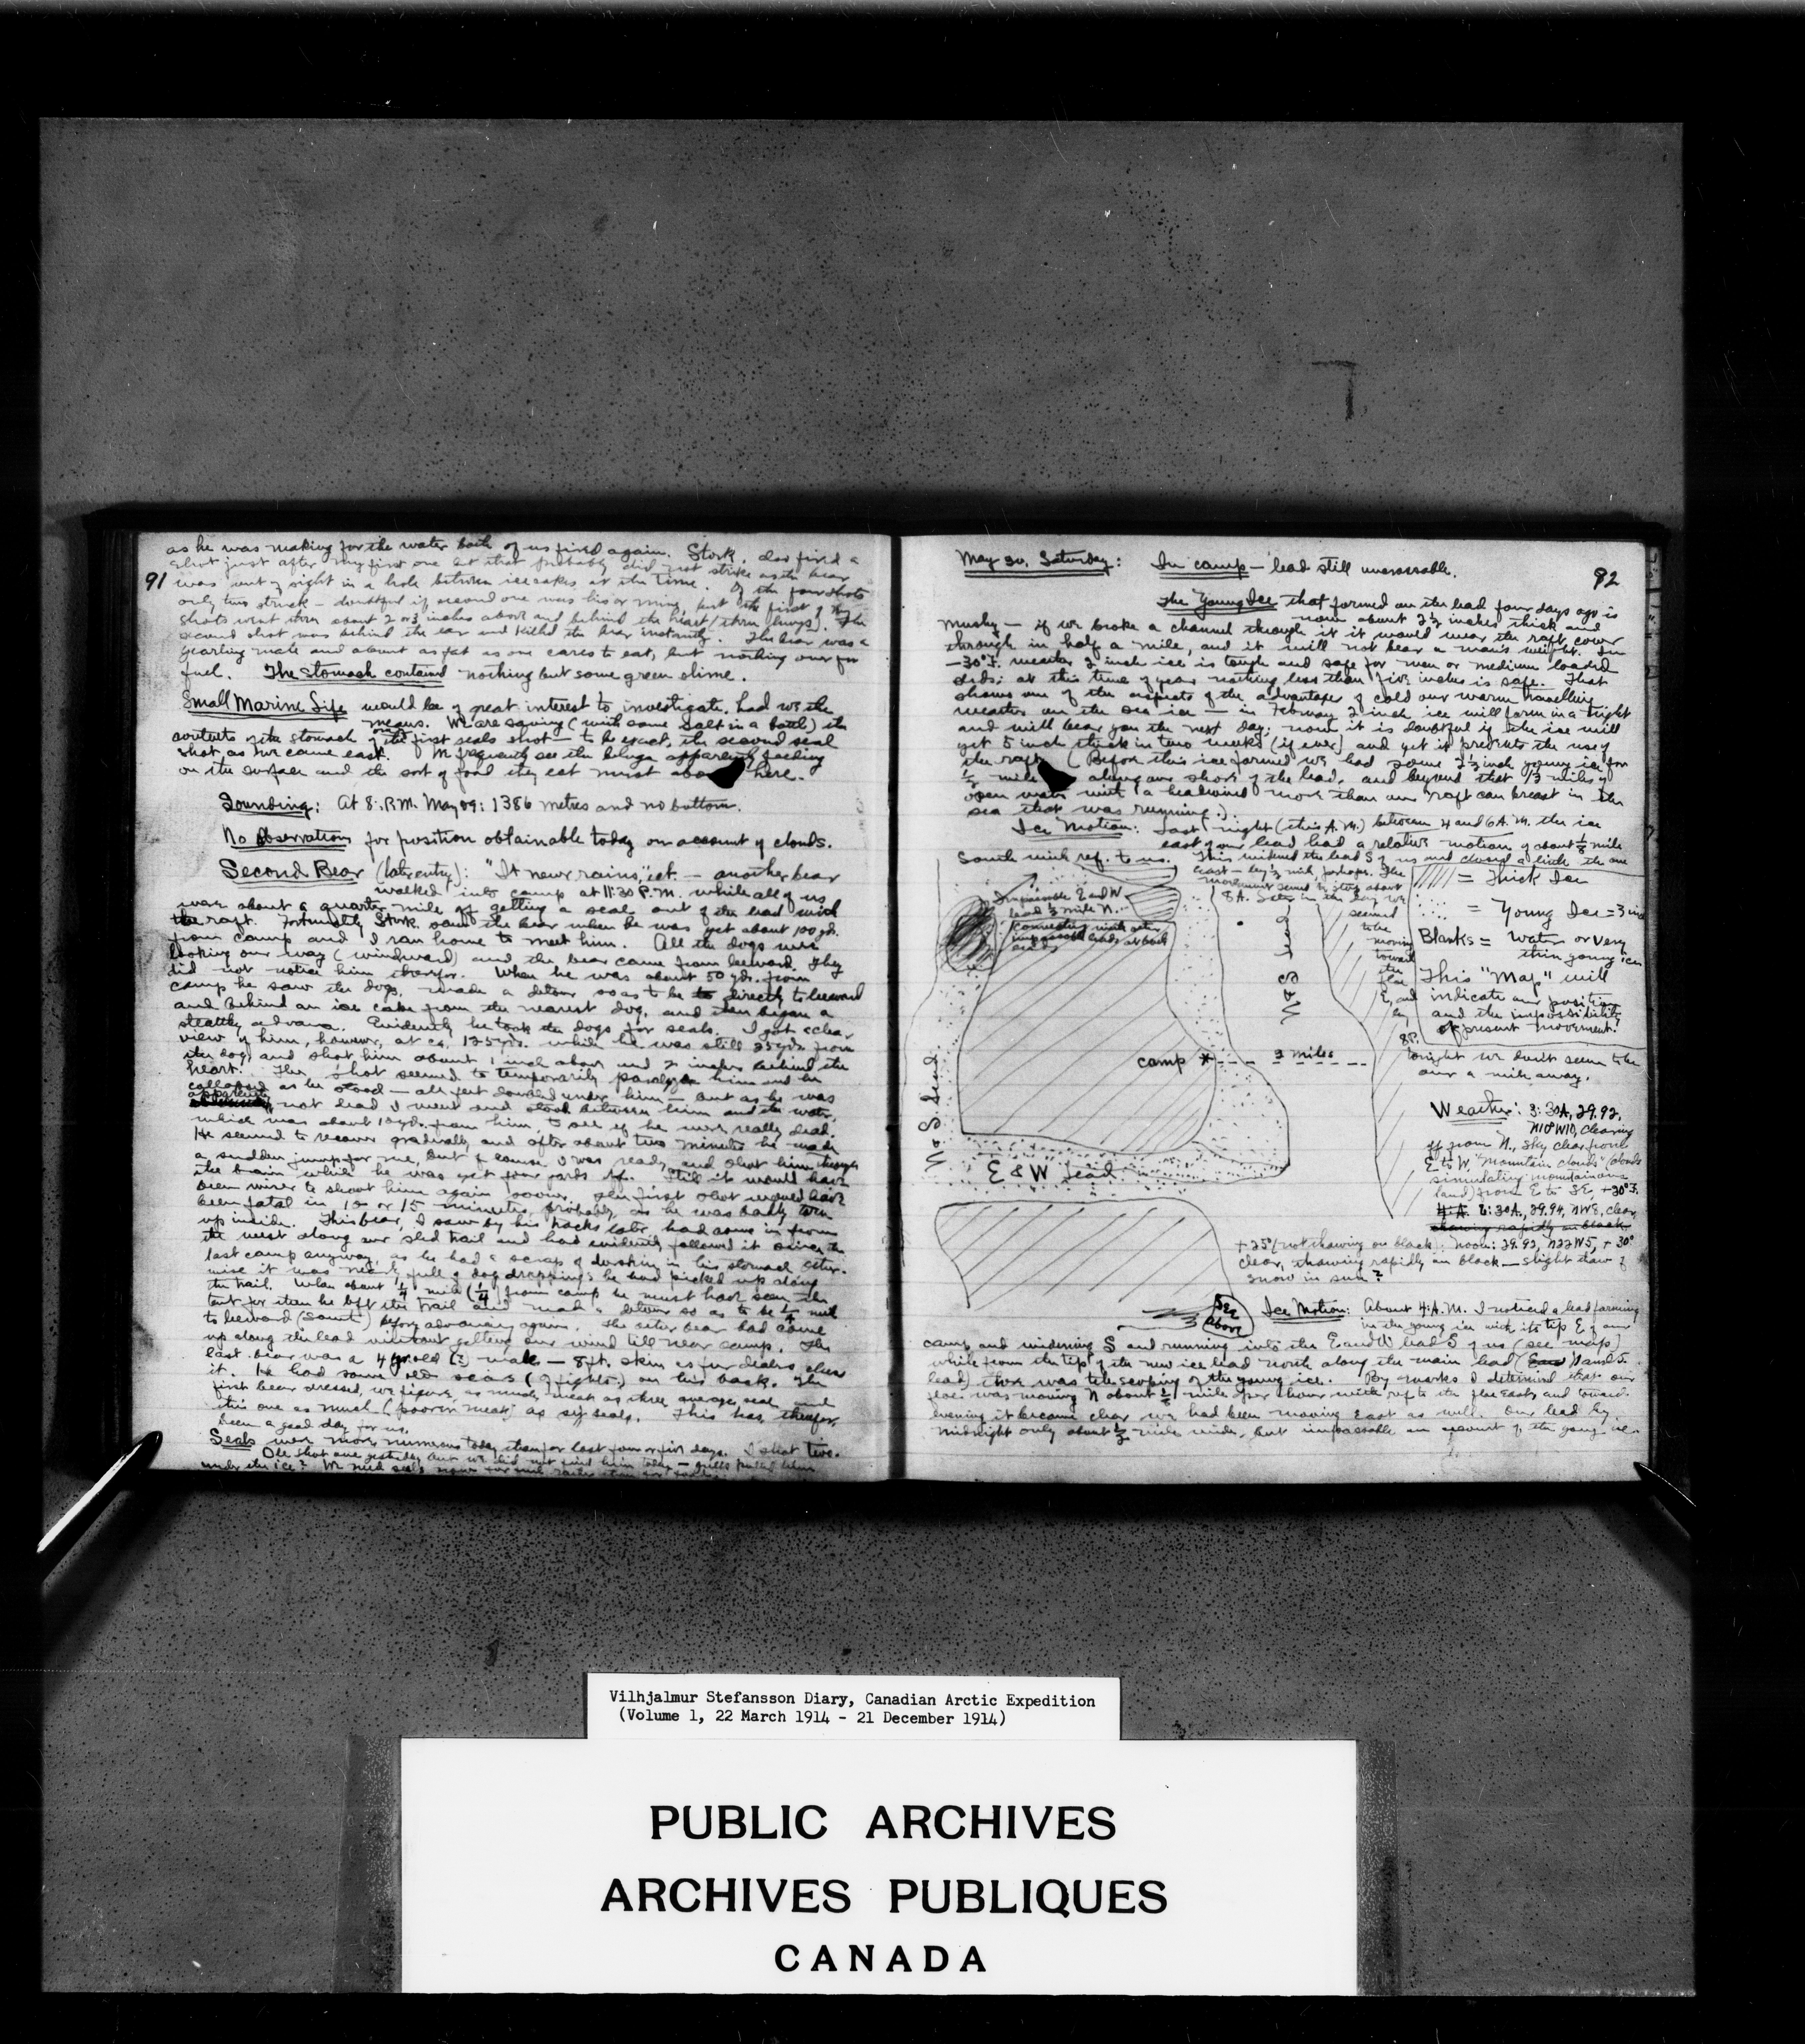 91
as he was making for the water both of us fired again. Stork. also fired a
shot just after my first one but that probably did not strike as the bear
was out of sight in a hole between ice cakes at the time. Of the four shots
only two struck – doubtful if second one was his or mine, but the first of my
shots went thru about 2 or 3 inches above and behind the heart (thru lungs). The
second shot was behind the ear and killed the bear instantly. The bear was a
yearling male and about as fat as one cares to eat, but nothing over for
fuel. The stomach contained nothing but some green slime.
Small Marine Life would be of great interest to investigate, had we the
means. We are saving (with some salt in a bottle) the
contents of the stomach of one of the first seals shot – to be exact, the second seal
shot as we came east. We frequently see the beluga apparently feeding
on the surface and the sort of food they eat must abo here.
Sounding: At 8. P.M. May 09: 1386 metres and no bottom.
No Observations for position obtainable today on account of clouds.
Second Bear (later entry): "It never rains," ect. – another bear
walked into camp at 11:30 P.M. while all of us
were about a quarter mile off getting a seal out of the lead with
the raft. Fortunately Stork. saw the bear when he was yet about 100 yds.
from camp and I ran home to meet him. All the dogs were
looking our way (windward) and the bear came from leeward. They
did not notice him therefor. When he was about 50 yds. from
camp he saw the dogs, made a detour so as to be directly to leeward
and behind an ice cake from the nearest dog, and then began a
stealthy advance. Evidently he took the dogs for seals. I got a clear
view of him, however, at ca. 125 yds. while he was still 25 yds. from
the dog, and shot him about 1 inch above and 2 inches behind the
heart. The shot seemed to temporarily paralyze him and he
collapsed as he stood – all feet doubled under him – but as he was
apparently not dead I went and stood between him and the water
which was about 10 yds. from him, to see if he were really dead.
He seemed to recover gradually and after about two minutes he made
a sudden jump for me, but of course I was ready and shot him through
the brain while he was yet four yards off. Still it would have
been wiser to shoot him again sooner. The first shot would have
been fatal in 10 or 15 minutes, probably, as he was badly torn
up inside. This bear, I saw by his tracks later, had come in from
the west along our sled trail and had evidently followed it since the
last camp anyway, as he had a scrap of deerskin in his stomach other-
wise it was nearly full of dog droppings he had picked up along
the trail. When about ¼ mile (¼) from camp he must have seen the
tent for then he left the trail and made a detour so as to be ¼ mile
to leeward (South) before advancing again. The other bear had come
up along the lead without getting our wind till near camp. The
last bear was a 4 yr. old (?) male – 8 ft. skin as fur dealers
it. He had some old scars (of fights?) on his back. The
first bear dressed, we figure, as much meat as three average seals and
this one as much (poorer meat) as six seals. This has, therefor,
been a good day for us.
Seals were more numerous today than for last four or five days. I shot two.
Ole shot one yesterday but we did not find him today – gulls
under the ice? We need seals now for
May 30. Saturday: In camp – lead still uncrossable.
92
The Young Ice that formed on the lead four days ago is
now about 2½ inches thick and
mushy – if we broke a channel through it it would wear the raft cover
through in half a mile, and it will not bear a man's weight. In
–30° F. weather 2 inch ice is tough and safe for men or medium loaded
sleds; at this time of year nothing less than five inches is safe. That
shows one of the aspects of the advantage of cold over warm travelling
weather on the sea ice – in February 2 inch ice will form in a night
and will bear you the next day; now it is doubtful if the ice will
get 5 inch thick in two weeks (if ever) and yet it precludes the use of
the raft. (Before this ice formed we had some 2½ inch young ice for
½ mile along our shore of the lead, and beyond that 1½ miles of
open water with a headwind more than our raft can breast in the
sea that was running.).
Ice Motion: Last night (this A.M.) between 4 and 6 A.M. the ice
east of our lead had a relative motion of about ⅛ mile
South with ref. to us. This widened the lead S of us and closed a little the one
east – by ½ mile, perhaps. The
movement seemed to stop about
8 A. Later in the day we
seemed
to be
moving
toward
the
floe
E, and
by
8 P.
tonight we don't seem to be
over a mile away.
Impassible E and W
lead ⅓ mile N.
Connecting with other
impassible leads at both
ends
= Thick Ice
= Young Ice = 3 in
Blanks = Water or very
thin young ice
This "Map" will
indicate our position
and the impossibility
of present movement.
N & S lead
N & S lead
camp * 2 miles
E & W lead
Weather: 3:30 A, 29.92,
N10°W10, Clearing
off from N., Sky clear from
E to W. "Mountain clouds" (clouds
simulating mountainous
land) from E to SE, +30° F.
4: A 6:30 A., 29.94, NW8, clear,
thawing rapidly on black
+25° (not thawing on black). Noon: 29.92, N22W5, +30°
clear, thawing rapidly on black – slight thaw of
snow in sun?
See
Above
Ice Motion: About 4: A.M. I noticed a lead forming
in the young ice with its tip E of our
camp and widening S and running into the E and W lead S of us (see map)
while from the tip of the new ice lead north along the main lead (East N and S.
lead) there was telescoping of the young ice. By marks I determined that our
floe was moving N about ½ mile per hour with ref to the floe East, and toward
evening it became clear we had been moving East as well. Our lead by
midnight only about ½ mile wide, but impassable on account of the young ice.
Vilhjalmur Stefansson Diary, Canadian Arctic Expedition
(Volume 1, 22 March 1914 - 21 December 1914)
PUBLIC ARCHIVES
ARCHIVES PUBLIQUES
CANADA